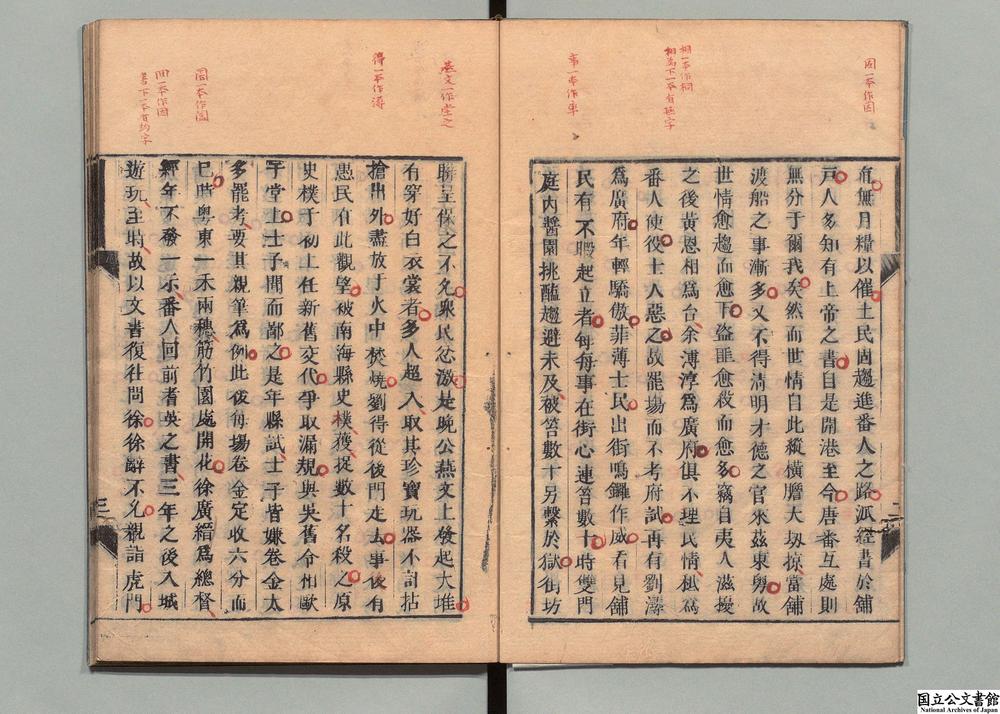 固一本作因
相一本作桐
相爲下一本有極字
事一本作車
有無月糧以催土民固趨進番人之路派經書於舖
戸人多知有上帝之書自是開港至今唐番互處則
無分于爾我矣然而世情自此縱橫膽大刼掠富舖
渡船之事漸多又不得清明才德之官來茲東粤故
世情愈趨而愈下盜匪愈殺而愈多竊自夷人滋擾
之後黄恩相爲台余溥淳爲廣府俱不理民情柾爲
番人使役士人惡之故罷塲而不考府試再有劉潯
爲廣府年輕驕傲菲薄士民出街鳴鑼作威看見舖
民有不暇起立者每每事在街心連笞數十時雙門
庭内醬園挑醢趨避未及被笞數十另繫於獄街坊
燕文一作堂之
得一本作潯
園一本作圓
回一本作因
書下一本有約字
聯呈保之不允衆民忿激是晚公燕文上發起大堆
有穿好白衣裳者多人超入取其珍寶玩器不計拈
搶出外盡放于火中焚燒劉得從後門走去事後有
愚民在此觀望被南海縣史樸獲捉數十名殺之原
史樸于初上任新舊交代爭取漏規與吳舊令相毆
于堂上士子聞而鄙之是年縣試士子皆嫌卷金太
多罷考要其親筆爲例此後每塲卷金定收六分而
已時粤東一禾兩穗筋竹園處開花徐廣縉爲總督
經年不發一示番人回前者英之書三年之後入城
遊玩至時故以文書復往問徐徐辭不允親詣虎門
三
国立公文書館
National Archives of Japan